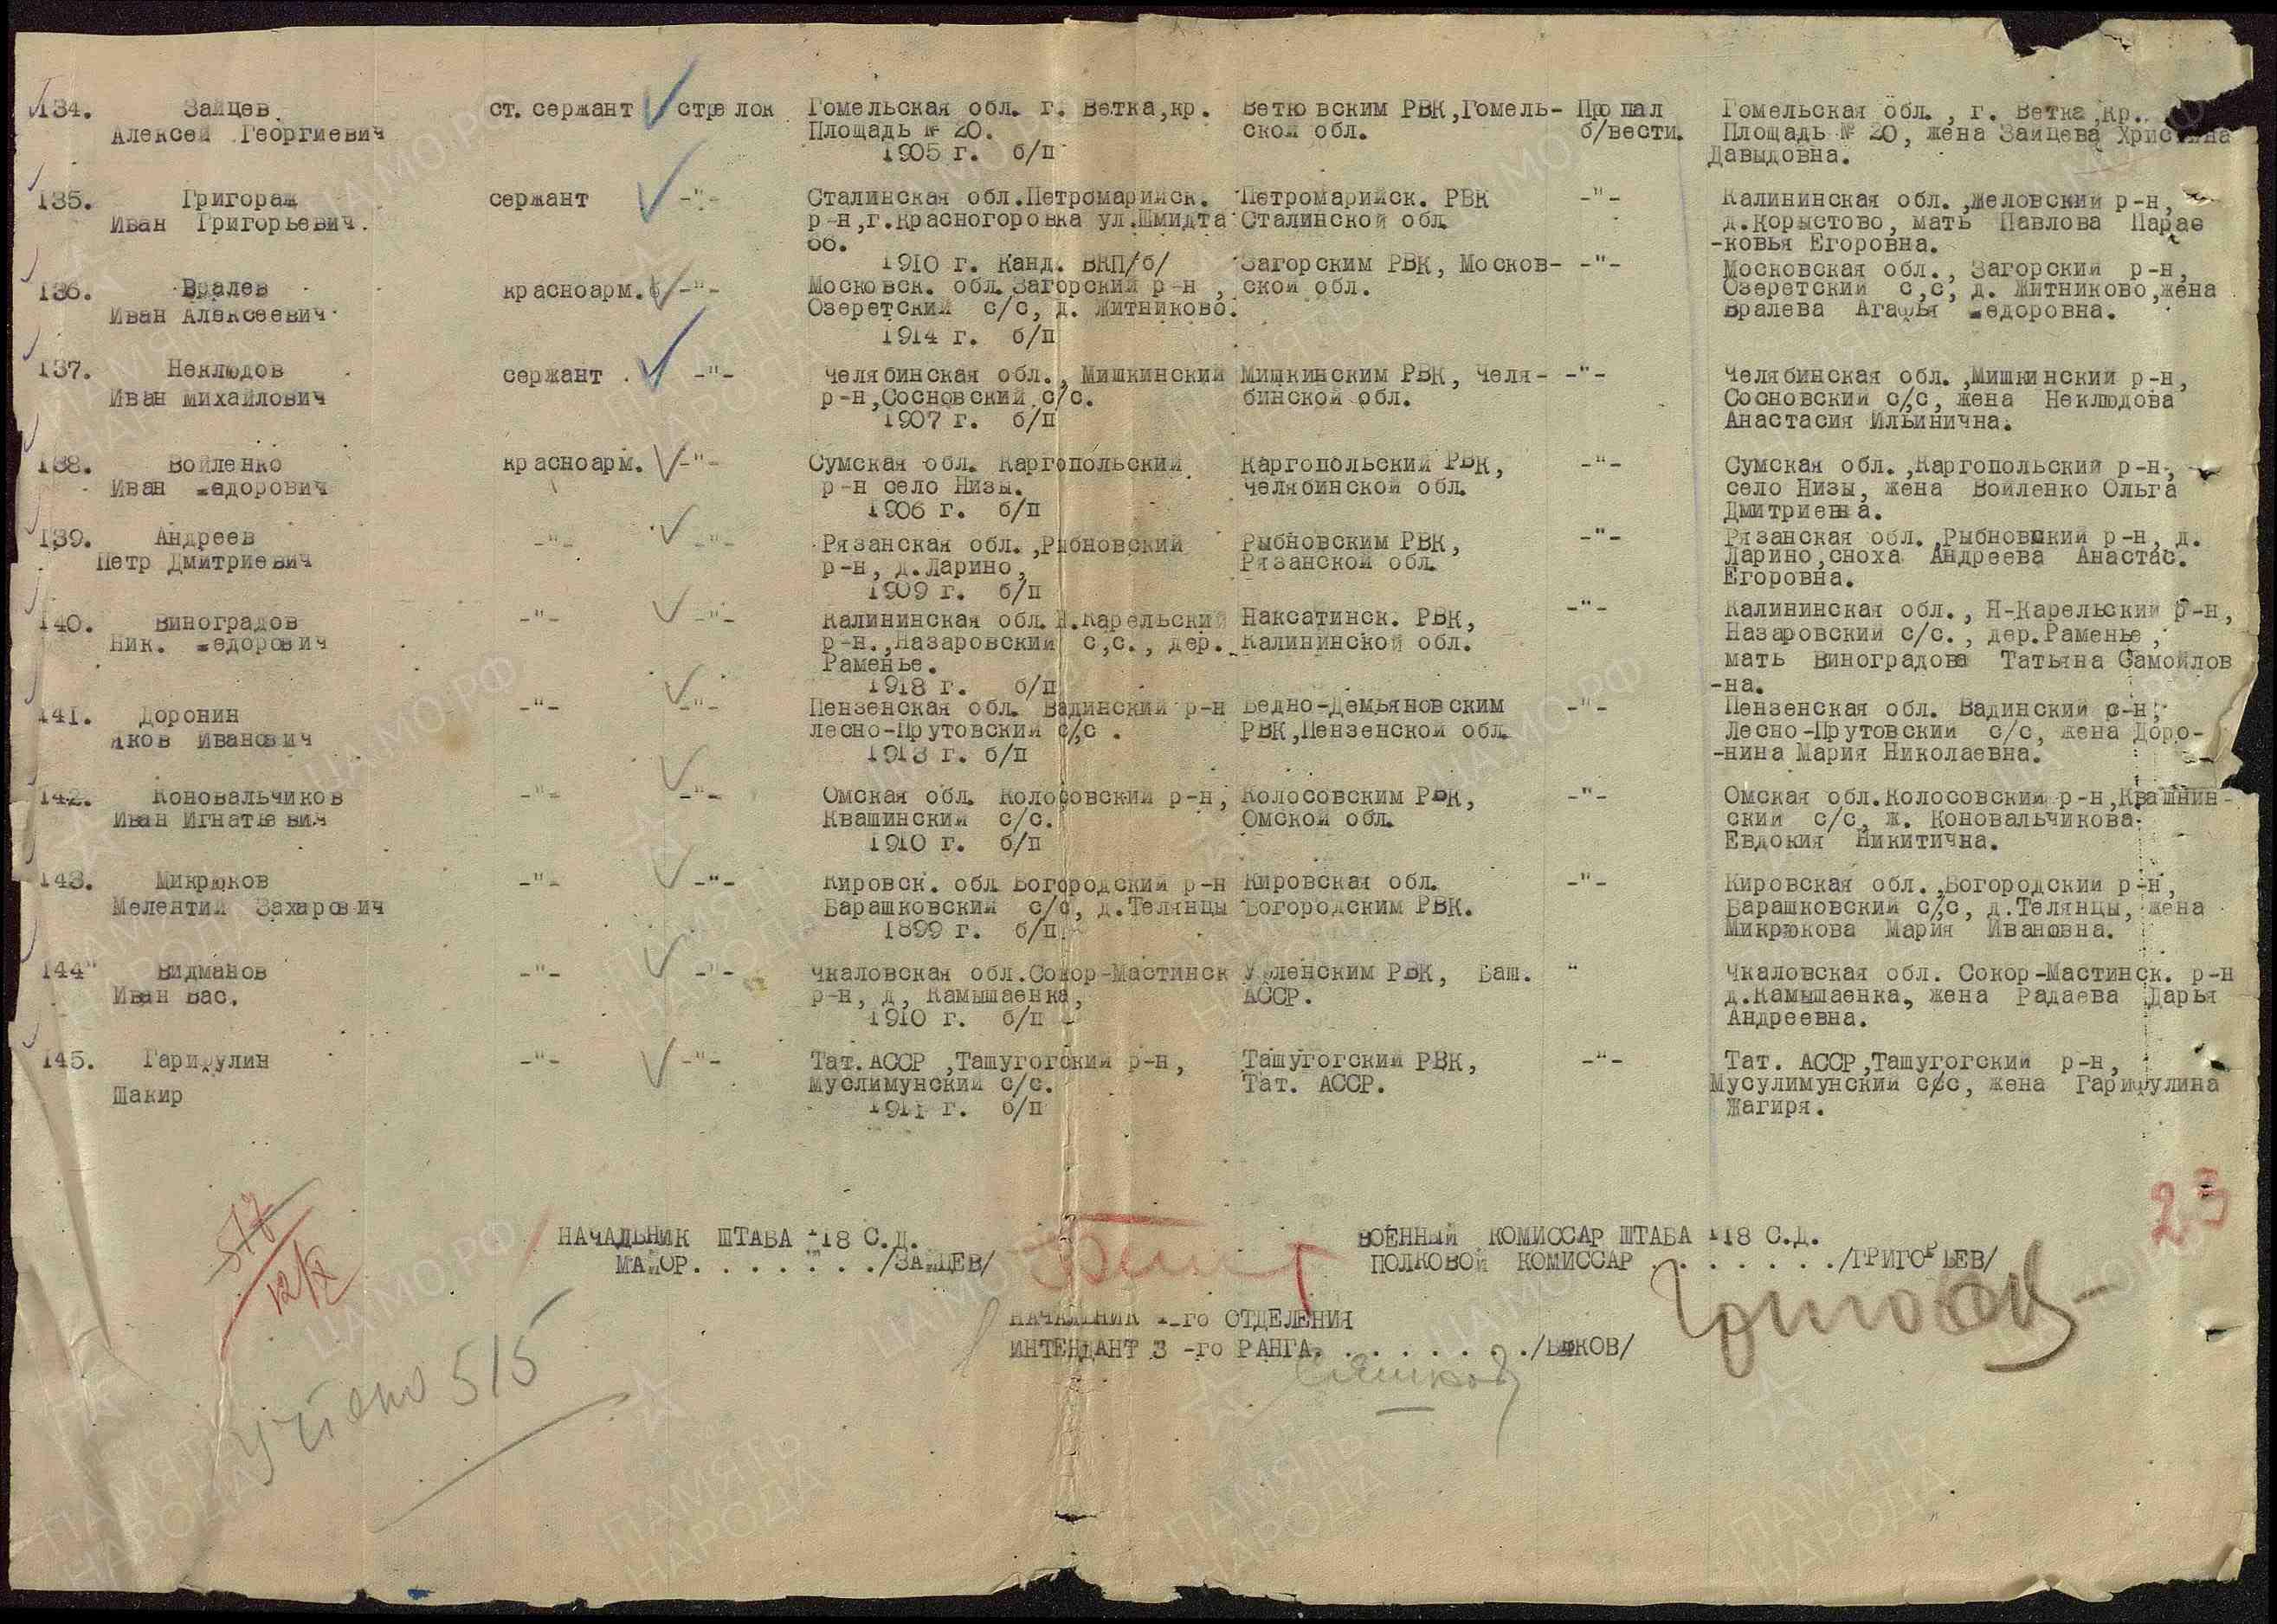 134. Зайцев ст. сержант стрелок Гомельская обл. г. Ветка,кр. Ветковским РВК,Гомель- Пропал Гомельская обл., г. Ветка,кр.
Алексей Георгиевич Площадь № 20. ской обл. б/вести. Площадь № 20, жена Зайцева Христина
1905 г. б/п Давыдовна.
135. Григораж сержант -"- Сталинская обл.Петромарийск. Петромарийск. РВК -"- Калининская обл.,Желовский р-н,
Иван Григорьевич. р-н,г.Красногоровка ул.Шмидта Сталинской обл. д.Корыстово, мать Павлова Парас
66. -ковья Егоровна.
1910 г. Канд. ВКП/б/
136. Вралев красноарм. -"- Московск. обл.Загорский р-н, Загорским РВК, Москов- -"- Московская обл., Загорский р-н,
Иван Алексеевич Озеретский с/с, д. Житниково. ской обл. Озеретский с,с, д. Житниково,жена
1914 г. б/п Вралева Агафья Федоровна.
137. Неклюдов сержант -"- Челябинская обл., Мишкинский Мишкинским РВК, Челя- -"- Челябинская обл.,Мишкинский р-н,
Иван Михайлович р-н,Сосновский с/с. бинской обл. Сосновский с/с, жена Неклюдова
1907 г. б/п Анастасия Ильинична.
138. Войленко красноарм. -"- Сумская обл. Каргопольский Каргопольский РВК, -"- Сумская обл.,Каргопольский р-н,
Иван Федорович р-н село Низы. Челябинской обл. село Низы, жена Войленко Ольга
1906 г. б/п Дмитриевна.
139. Андреев -"- -"- Рязанская обл.,Рыбновский Рыбновским РВК, -"- Рязанская обл.,Рыбновский р-н, д.
Петр Дмитриевич р-н, д.Ларино, Рязанской обл. Ларино,сноха Андреева Анастас.
1909 г. б/п Егоровна.
140. Виноградов -"- -"- Калининская обл.Н.Карельский Наксатинск. РВК, -"- Калининская обл., Н-Карельский р-н,
Ник. Федорович р-н.,Назаровский с,с., дер. Калининской обл. Назаровский с/с., дер.Раменье,
Раменье. мать Виноградова Татьяна Самойлов
1918 г. б/п -на.
141. Доронин -"- -"- Пензенская обл. Вадинский р-н Бедно-Демьяновским -"- Пензенская обл. Вадинский р-н,
Яков Иванович лесно-Прутовский с/с. РВК,Пензенской обл. Лесно-Прутовский с/с, жена Доро-
1913 г. б/п -нина Мария Николаевна.
142. Коновальчиков -"- -"- Омская обл. Колосовский р-н, Колосовским РВК, -"- Омская обл.Колосовский р-н,Квашнин-
Иван Игнатьевич Квашинский с/с. Омской обл. ский с/с, ж. Коновальчикова
1910 г. б/п Евдокия Никитична.
143. Микрюков -"- -"- Кировск. обл Богородский р-н Кировская обл. -"- Кировская обл.,Богородский р-н,
Мелентий Захарович Барашковский с/с, д.Телянцы Богородским РВК. Барашковский с/с, д.Телянцы, жена
1899 г. б/п Микрюкова Мария Ивановна.
144" Видманов -"- -"- Чкаловская обл.Сокор-Мастинск РВК, Баш. " Чкаловская обл. Сокор-Мастинск. р-н
Иван Вас. р-н, д, Камышаенка, АССР. д.Камышаенка, жена Радаева Дарья
1910 г. б/п Андреевна.
145. Гарифулин -"- -"- Тат.АССР ,Ташугогский р-н, Ташугогский РВК, -"- Тат. АССР,Ташугогский р-н,
Шакир Муслимунский с/с. Тат. АССР. Мусулимунский с/с, жена Гарифулина
1911 г. б/п Жагиря.
23
517
12/X
НАЧАЛЬНИК ШТАБА 118 С.Д. ВОЕННЫЙ КОМИССАР ШТАБА 118 С.Д.
МАЙОР......../ЗАЙЦЕВ/ ПОЛКОВОЙ КОМИССАР ......./ГРИГОРЬЕВ/
НАЧАЛЬНИК -го ОТДЕЛЕНИЯ
ИНТЕНДАНТ 3 -го РАНГА........
учтено 515
ПАМЯТЬ НАРОДА
ПАМО.РФ